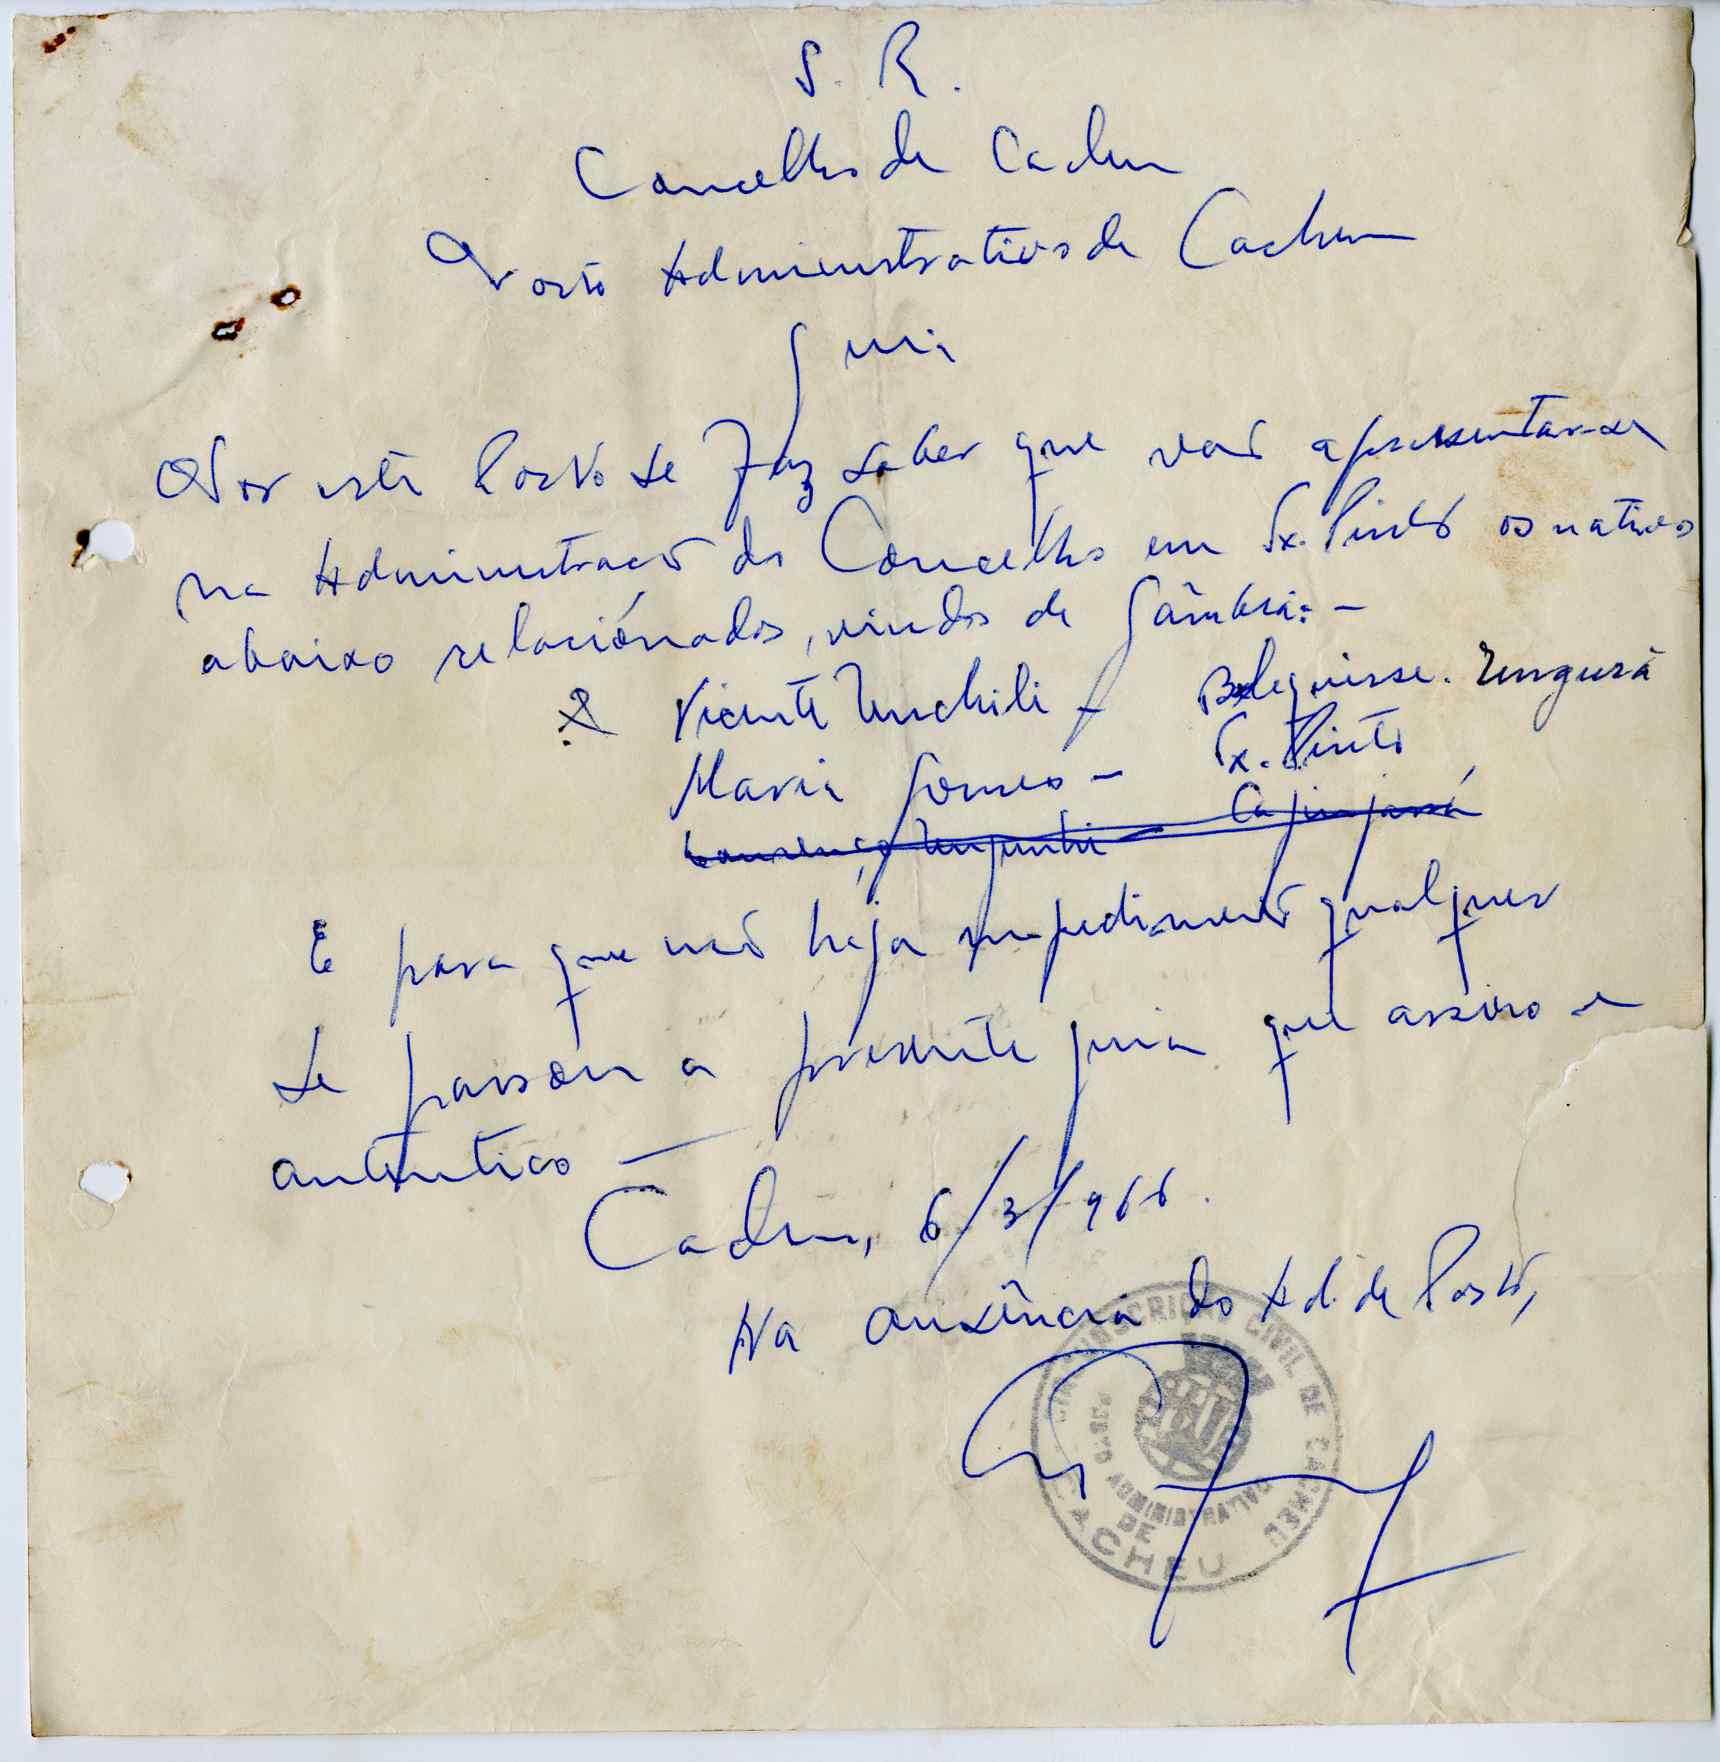 S. R.
Concelho de Cacheu
Posto Administrativo de Cacheu
Guia
Por este Posto se faz saber que vão apresentar-se
na Administração do Concelho em Tx. Pinto os nativos
abaixo relacionados, vindos de Gâmbia: -
Vicente Unchili - Beleguisse.
Maria Gomes - Tx. Pinto
E para que não haja impedimento qualquer
se passou a presente guia que assino e
autentico —
Cacheu, 6/3/966.
Na ausência do Ad. de Posto,
CIRCUNSCRIÇÃO CIVIL DE CACHEU
POSTO ADMINISTRATIVO
DE
CACHEU